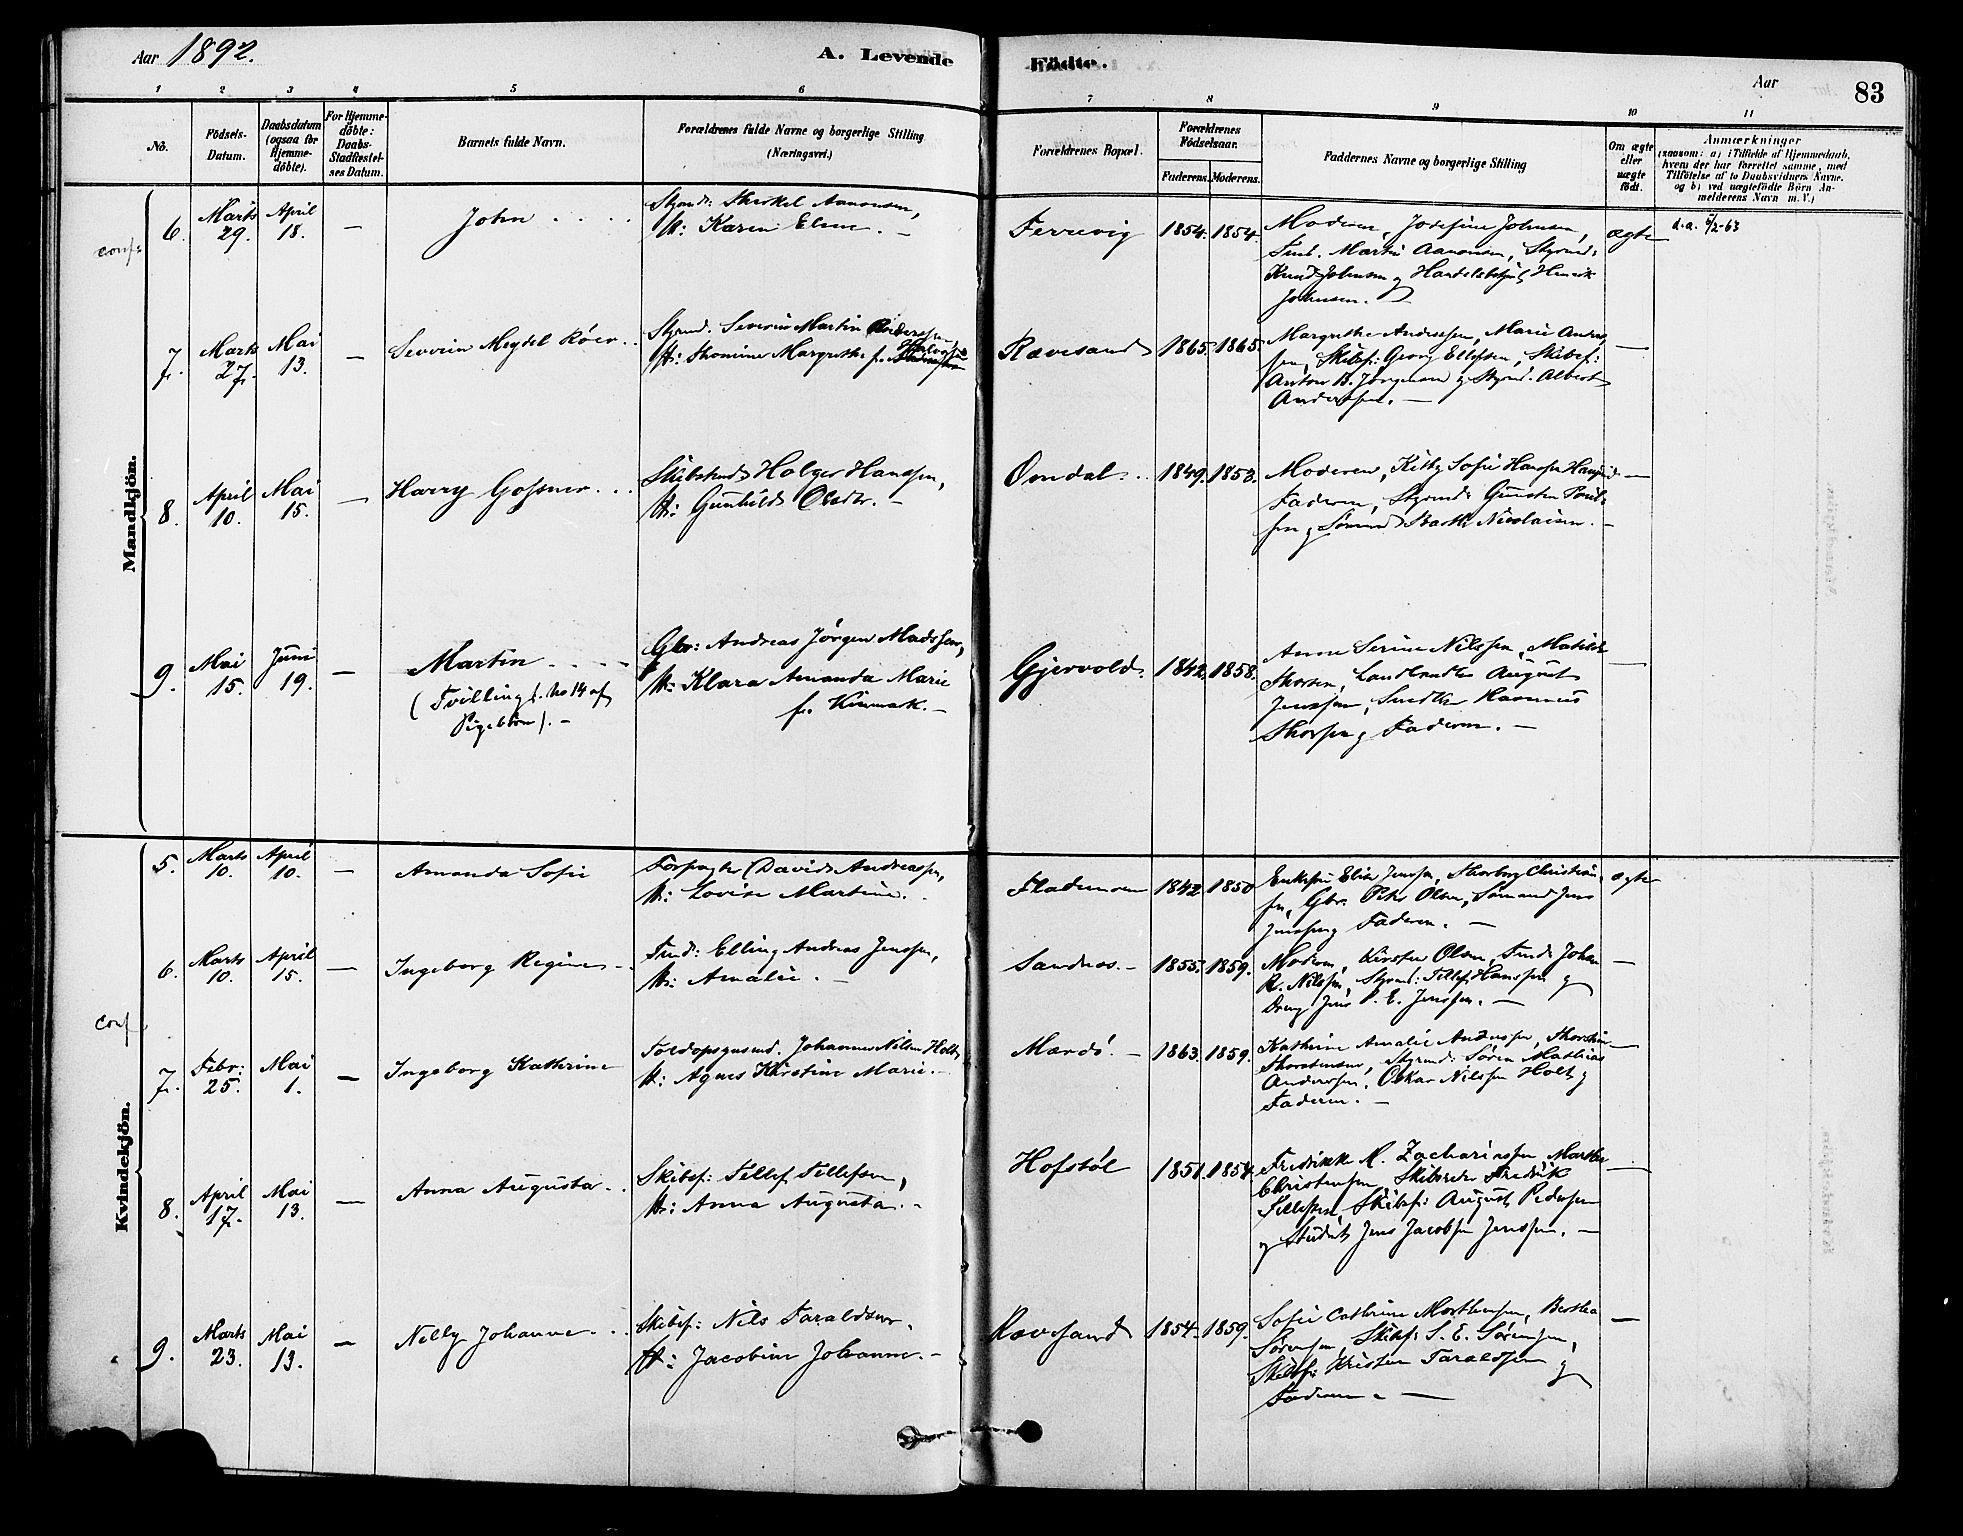 Aar 1892.
A. Levende Födte.
Aar
83
1 2 3 4 5 6 7 8 9 10 11
No.
Födsels-
Datum.
Daabsdatum
(ogsaa for
Hjemme-
döbte).
For Hjemme-
döbte:
Daabs-
Stadfæstel-
ses Datum.
Barnets fulde Navn.
Forældrenes fulde Navne og borgerlige Stilling
(Næringsvei.)
Forældrenes Bopæl.
Forældrenes
Födselsaar.
Faderens. Moderens.
Faddernes Navne og borgerlige Stilling
Om ægte
eller
uægte
födt.
Anmærkninger
(saasom: a) i Tilfælde af Hjemmedaab,
hvem der har forrettet samme, med
Tilföielse af to Daabsvidners Navne.
og b) ved uægtefödte Börn An-
melderens Navn m. V.)
Mandkjön.
conf.
6.
Marts
29.
April
18.
—
John . . . .
Styrmd: Therkel Aanonsen,
H: Karen Elene. —
Ferrevig
1854. 1854.
Moderen, Josefine Johnsen,
Tmb. Martin Aanonsen, Styrmd:
Knud Johnsen og Handelsbetj. Henrik
Johnsen. —
ægte
d.a. 5/2-63
7.
Marts
27.
Mai
13.
—
Severin Meydel Röer . .
Styrmd. Severin Martin
H: Thomine Margrethe f.
Rævesand
1865. 1865.
Margrethe Anderssen, Marie Anders
sen, Skibsf: Georg Ellefsen, Skibsf:
Anton B. Jörgensen og Styrmd. Albert
Anderssen. —
—
8.
April
10.
Mai
15.
—
Harry Gossner . . .
Holger Hanssen,
H: Gunhild Olsdtr. —
Omdal . .
1849. 1853.
Moderen, Kitty Sofie Hanssen
Faderen, Styrmd: Gunsten
sen og Sömand Barth Nicolaisen. —
—
9.
Mai
15.
Juni
19.
—
Martin . . . .
(Tvilling f. No 14 af
Pigebörn). —
Gbr: Andreas Jörgen Madssen,
H: Klara Amanda Marie
f. Kinmark. —
Gjervold.
1842. 1858.
Anne Serine Nilssen, Matilde
Thorsen, August
Jenssen, Rasmus
Thorsen og Faderen. —
—
Kvindekjön.
5.
Marts
10.
April
10.
—
Amanda Sofie
Forpagter David Andreassen,
H: Lovise Martine. .
Flademoen
1842 1850
Enkefru Elise Jenssen, Thorborg Christian-
sen, Gbr. Peter Olsen, Sömand Jens
Jenssen og Faderen. —
ægte
6.
Marts
10.
April
15.
—
Ingeborg Regine —
Tmd: Elling Andreas Jenssen,
H: Amalie. —
Sandnes. —
1855. 1859.
Moderen, Kirsten Olsen, Tmd: Johan
R. Nilssen, Styrmd: Tellef Hanssen og
Dreng Jens P. E. Jenssen. —
—
conf.
7.
Febr:
25.
Mai
1.
—
Ingeborg Kathrine
Toldopsynsmd. Johannes Nilsen Holt,
H: Agnes Kirstine Marie. —
Mærdö. —
1863. 1859.
Kathrine Amalie Anderssen,
Thorstensen, Styrmd: Sören Mathias
Anderssen, Oskar Nilssen Holt og
Faderen. —
—
8.
April
17.
Mai
13.
—
Anna Augusta . .
Skibsf: Tellef Tellefsen,
H: Anna Augusta. —
Hofstöl
1851. 1854.
Fredrikke M. Zachariassen, Marthe
Christensen, Skibsreder Fredrik
Tellefsen, Skibsf: August Pedersen
og Student Jens Jacobsen Jenssen. —
—
9.
Marts
23.
Mai
13.
—
Nelly Johanne . . .
Skibsf: Nils Taraldsen.
H: Jacobine Johanne. —
Rævesand
1854. 1859.
Sofie Cathrine Morthensen, Berthea
Sörensen, Skibsf: S. E. Sörensen,
Skibsf: Kristen Taraldsen og
Faderen. —
—